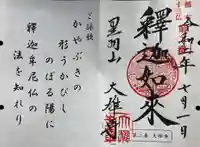 令和二年七月一日
釋迦如來
黒羽山
大雄寺
ご詠歌
かやぶきの
形うかびし
のぼる陽に
釋迦牟尼仏の
法を知れり